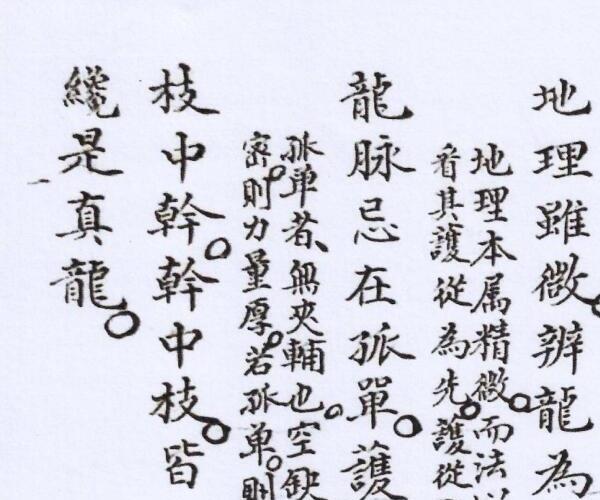 地理雖微辨龍為
地理本属精微。而法
看其護從為先。護從
龍脉忌在孤單。護
孤單者、無夾輔也。空缺
密則力量厚。若孤单。則
枝中幹。幹中枝。皆
纔是真龍。